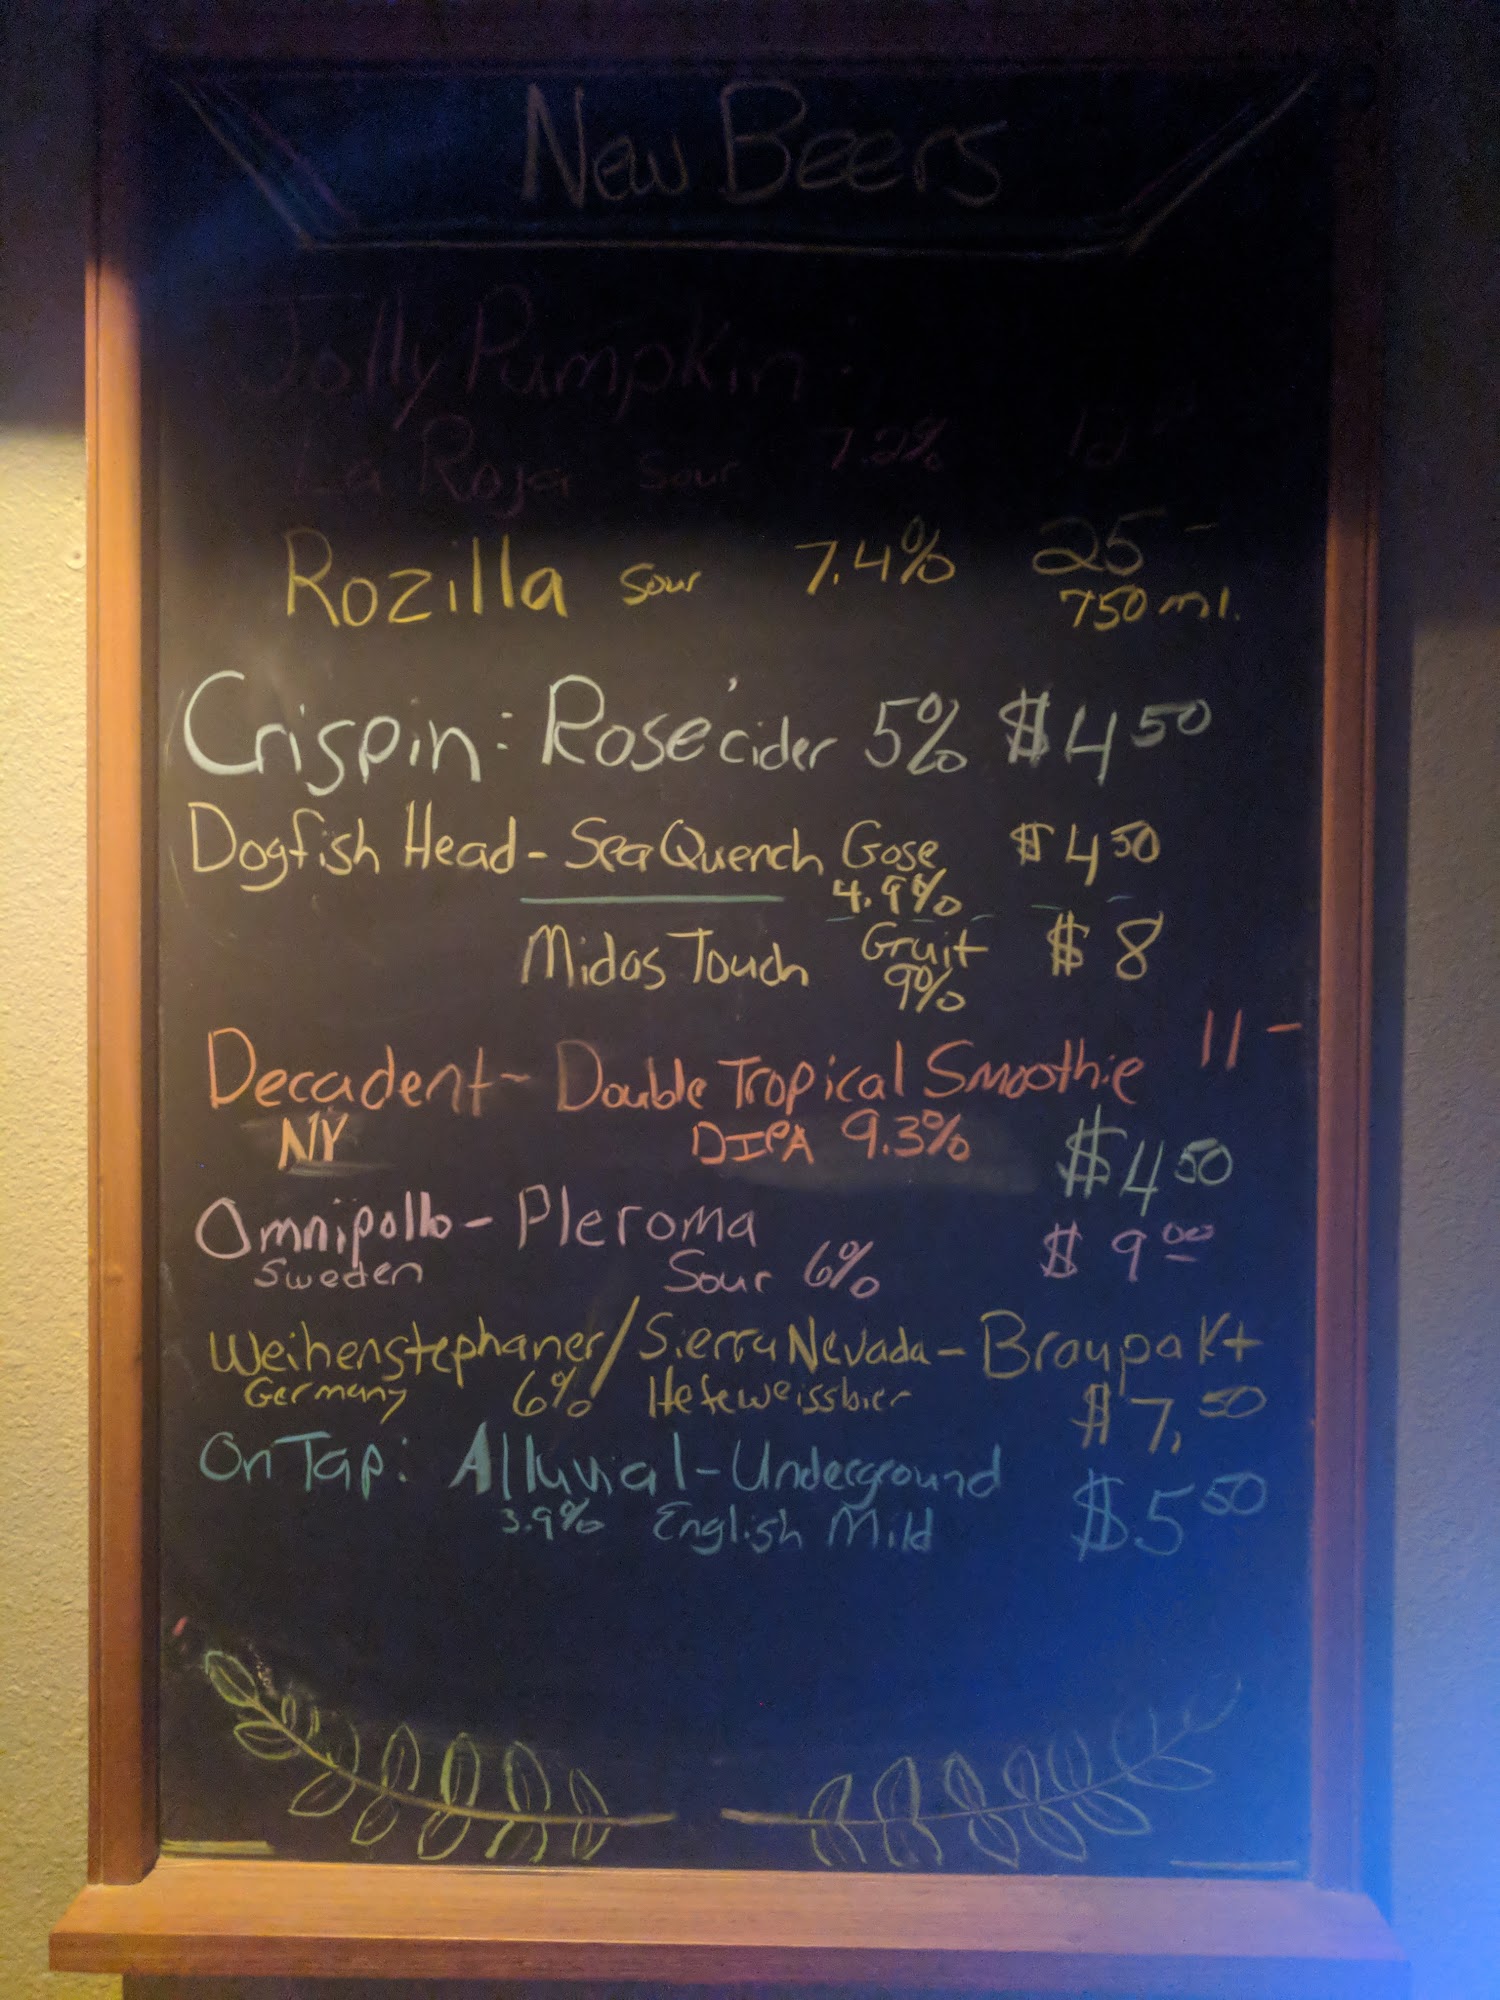 New Beers
Jolly Pumpkin
La Roja Sour 7.2% 12 -
Rozilla Sour 7.4% 25 -
750 ml.
Crispin: Rosé cider 5% $4 50
Dogfish Head - SeaQuench Gose $4 50
4.9%
Midas Touch Gruit $8
9%
Decadent - Double Tropical Smoothie 11 -
NY DIPA 9.3% $4 50
Omnipollo - Pleroma
Sweden Sour 6% $9 00
Weihenstephaner / Sierra Nevada - Braupakt
Germany 6% Hefeweissbier $7,50
On Tap: Alluvial - Underground
3.9% English Mild $5 50